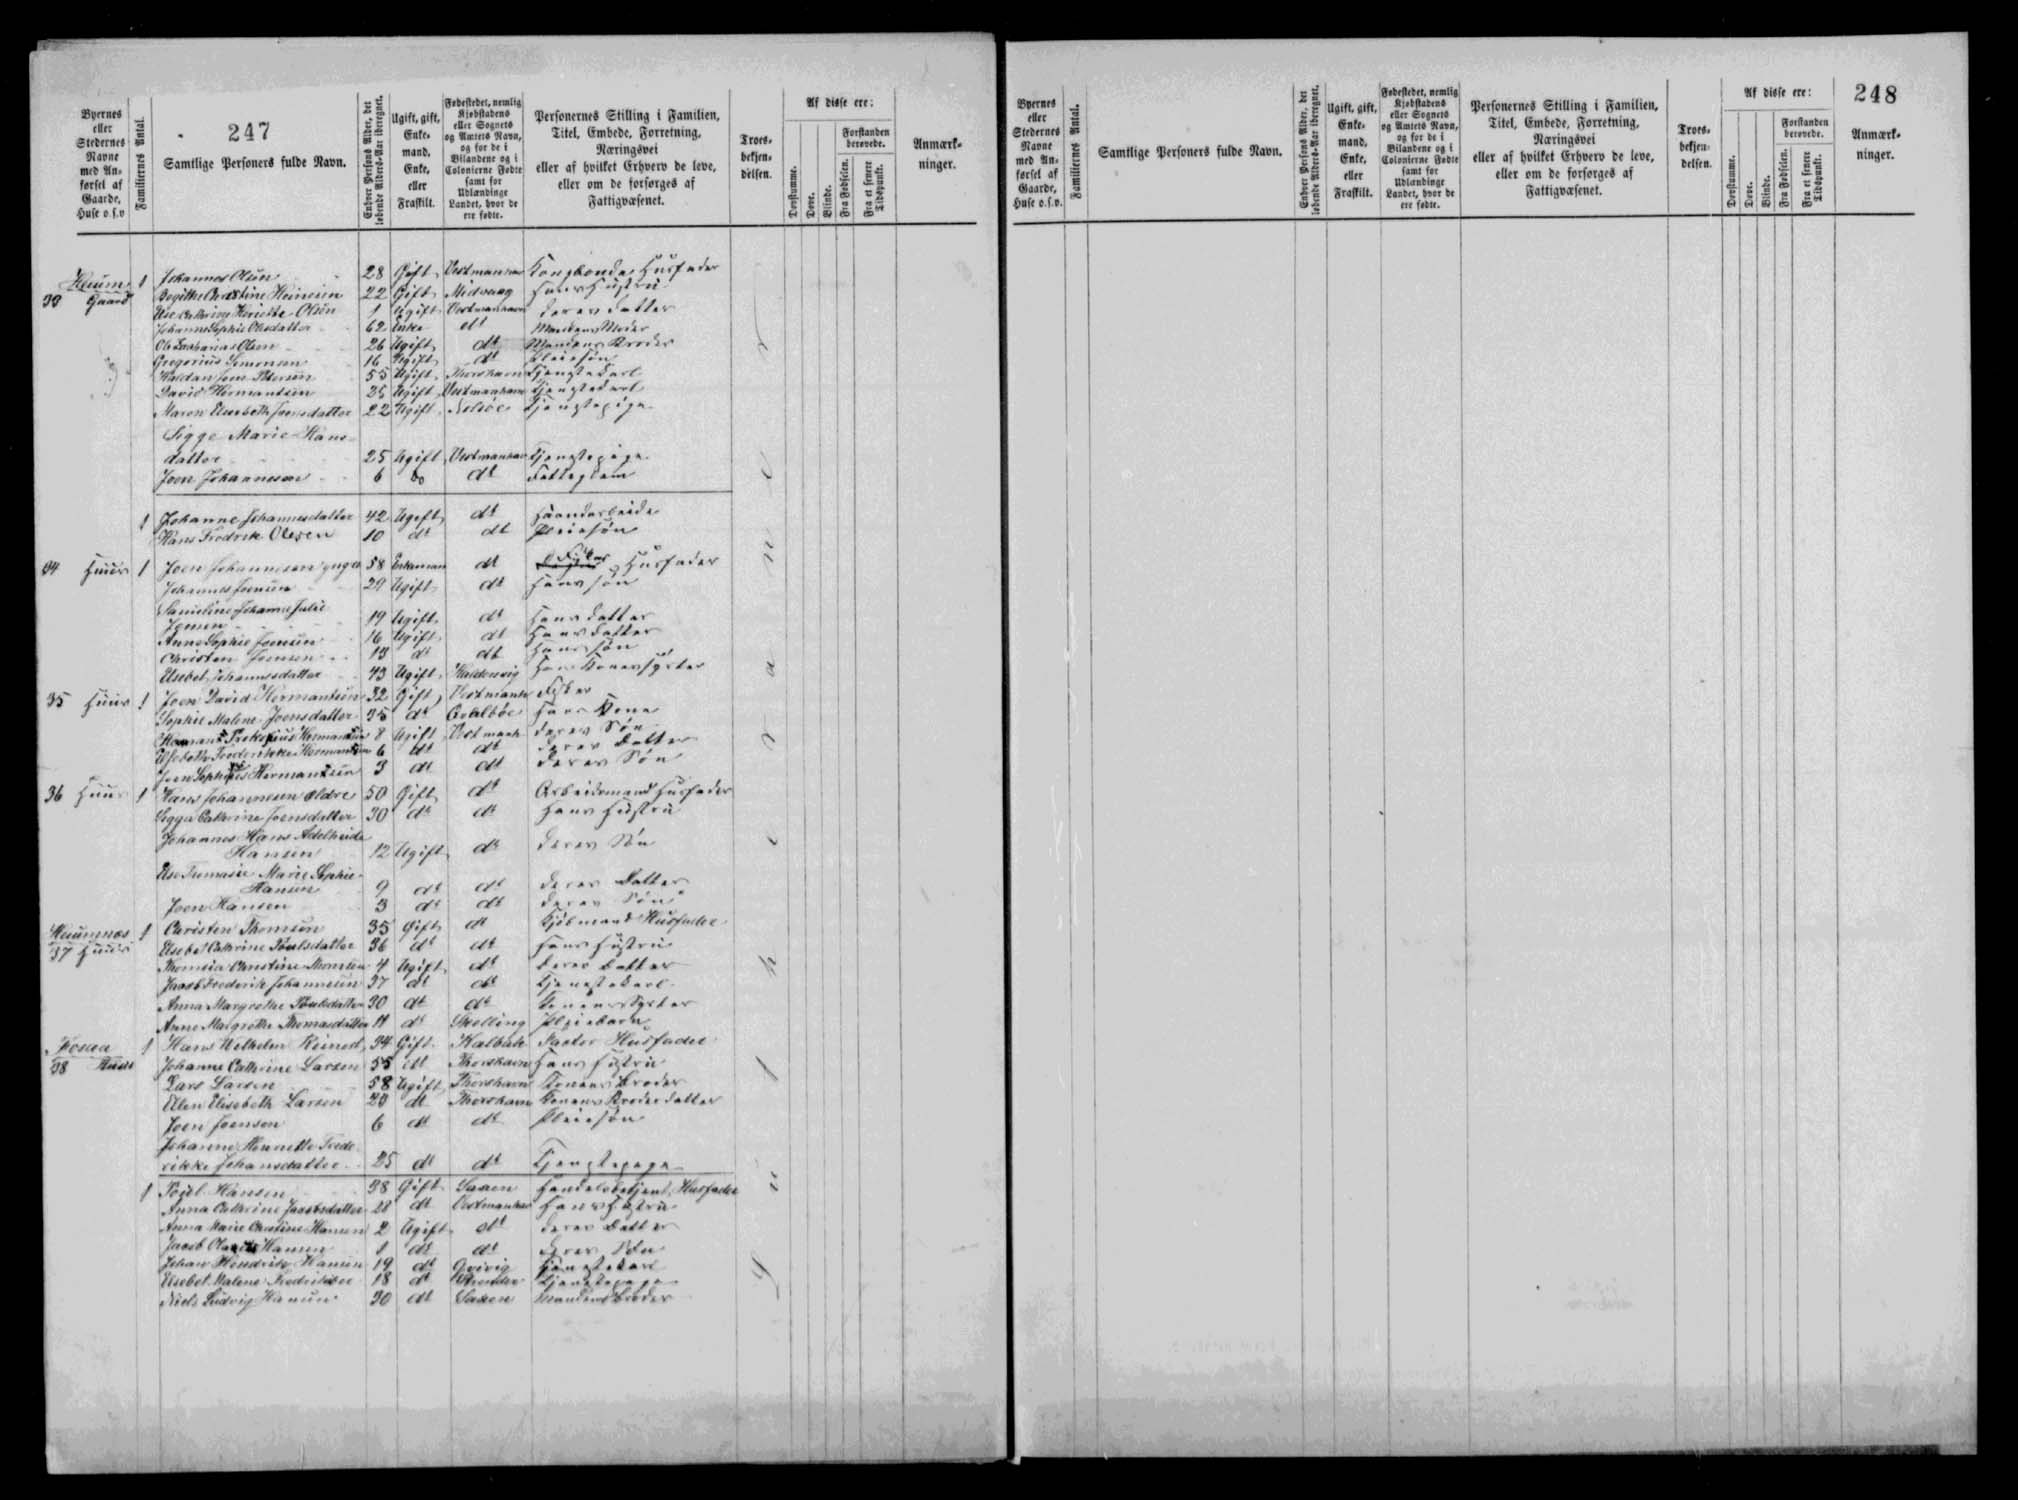 247
Byernes eller Stedernes Navne med Anførsel af Gaarde, Huse o.s.v
Familiernes Antal.
Samtlige Personers fulde Navn.
Enhver Persons Alder, det løbende Alders-Aar iberegnet.
Ugift, gift, Enkemand, Enke, eller Fraskilt.
Fødestedet, nemlig Kjøbstadens eller Sognets og Amtets Navn, og for de i Bilandene og i Colonierne Fødte samt for Udlændinge Landet, hvor de ere fødte.
Personernes Stilling i Familien, Titel, Embede, Forretning, Næringsvei eller af hvilket Erhverv de leve, eller om de forsørges af Fattigvæsenet.
Troesbekjendelsen.
Af disse ere:
Døvstumme.
Døve.
Blinde.
Forstanden berøvede.
Fra Fødselen.
Fra et senere Tidspunkt.
Anmærkninger.
Johannes Olsen 28 Gift Vestmanhav Kongsbonde Husfader
Gaard Birgitte Christine Heinesen 22 Gift Midvaag Hans Hustru
Else Cathrine Henriette Olsen 1 Ugift Vestmanhavn deres Datter
Johanne Sophie Olesdatter 62 Enke dt Mandens Moder
Ole Zacharias Olsen 26 Ugift dt Mandens Broder
Gregorius Simonsen 16 Ugift dt Pleiesøn
Haldan Joen Petersen 55 Ugift Thorshavn Tjenestekarl
David Hermansen 25 Ugift Vestmanhavn Tjenestekarl
Maren Elsebeth Joensdatter 22 Ugift Nolsöe Tjenestepige
Sigge Marie Hans-
datter 25 Ugift Vestmanhav Tjenestepige
Joen Johannesen 6 do dt Fattiglem
1 Johanne Johannesdatter 42 Ugift dt Haandarbeide
Hans Fredrik Olesen 10 dt dt Pleiesøn
34 Huus 1 Joen Johannesen yngre 58 Enkeman dt Fisker Husfader
Johannes Joensen 29 Ugift dt Hans Søn
Sameline Johanne Julie
Jensen 19 Ugift dt Hans Datter
Anne Sophie Joensen 16 Ugift dt Hans Datter
Christen Joensen 13 dt dt Hans Søn
Elsebet Johannesdatter 43 Ugift Haldersvig Hans Konesyster
35 Huus 1 Joen David Hermansen 32 Gift Vestmanh Fisker
Sophie Malene Joensdatter 35 dt Qvalböe Hans Kone
8 Ugift Vestmanh deres Søn
Elsebeth Frederikke Hermansen 6 dt dt deres Datter
Hermansen 3 dt dt deres Søn
36 Huus 1 Hans Johannesen ældre 50 Gift dt Arbeidsmand Husfader
Sigga Cathrine Joensdatter 30 dt dt Hans Hustru
Johannes Hans Adelheide
Hansen 12 Ugift dt deres Søn
Else Tomasie Marie Sophie
Hansen 9 dt dt deres Datter
Joen Hansen 3 dt dt deres Søn
1 Christen Thomsen 35 Gift dt Kjöbmand Husfader
37 Huus Elsebet Cathrine Poulsdatter 36 dt dt Hans Hustru
Thomsia Christine Thomsen 4 Ugift dt deres Datter
Jacob Frederik Johannesen 37 dt dt Tjenestekarl
Anna Margrethe Poulsdatter 30 dt dt Konens Syster
Anne Margrethe Thomasdatter 11 dt Skelling Pleiebarn
38 1 Hans Wilhelm Reinert 34 Gift Kalbak Factor Husfader
Johanne Cathrine Larsen 55 dt Thorshavn Hans Hustru
Lars Larsen 58 Ugift Thorshavn Konens Broder
Ellen Elisabeth Larsen 29 dt Thorshavn Konens Broderdatter
Joen Joensen 6 dt dt Pleiesøn
Johanne Henriette Frede-
rikke Johansdatter 25 dt dt Tjenstepige
1 Poul Hansen 38 Gift Saxen Handelsbetjent, Husfader
Anna Cathrine Jacobsdatter 28 dt Vestmanhav Hans Hustru
Anna Marie Christine Hansen 2 Ugift dt deres Datter
Jacob Hansen 1 dt dt deres Søn
Johan Hendrik Hansen 19 dt Qvivig Tjenestekarl
Elsebet Malene 18 dt Tjenestepige
Niels Ludvig Hansen 30 dt Saxen Mandens Broder
Lutheraner
248
Byernes eller Stedernes Navne med Anførsel af Gaarde, Huse o.s.v.
Familiernes Antal.
Samtlige Personers fulde Navn.
Enhver Persons Alder, det løbende Alders-Aar iberegnet.
Ugift, gift, Enkemand, Enke, eller Fraskilt.
Fødestedet, nemlig Kjøbstadens eller Sognets og Amtets Navn, og for de i Bilandene og i Colonierne Fødte samt for Udlændinge Landet, hvor de ere fødte.
Personernes Stilling i Familien, Titel, Embede, Forretning, Næringsvei eller af hvilket Erhverv de leve, eller om de forsørges af Fattigvæsenet.
Troesbekjendelsen.
Af disse ere:
Døvstumme.
Døve.
Blinde.
Forstanden berøvede.
Fra Fødselen.
Fra et senere Tidspunkt.
Anmærkninger.